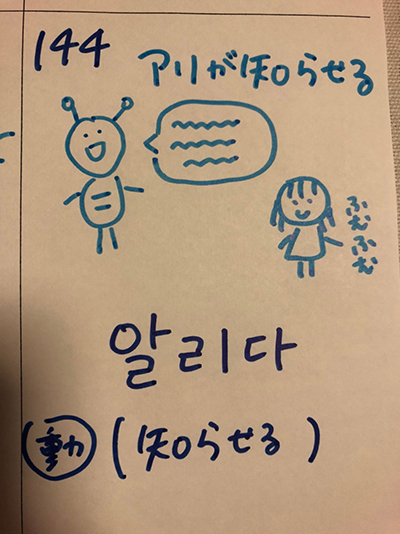 144
アリが知らせる
ふむふむ
알리다
動 (知らせる)